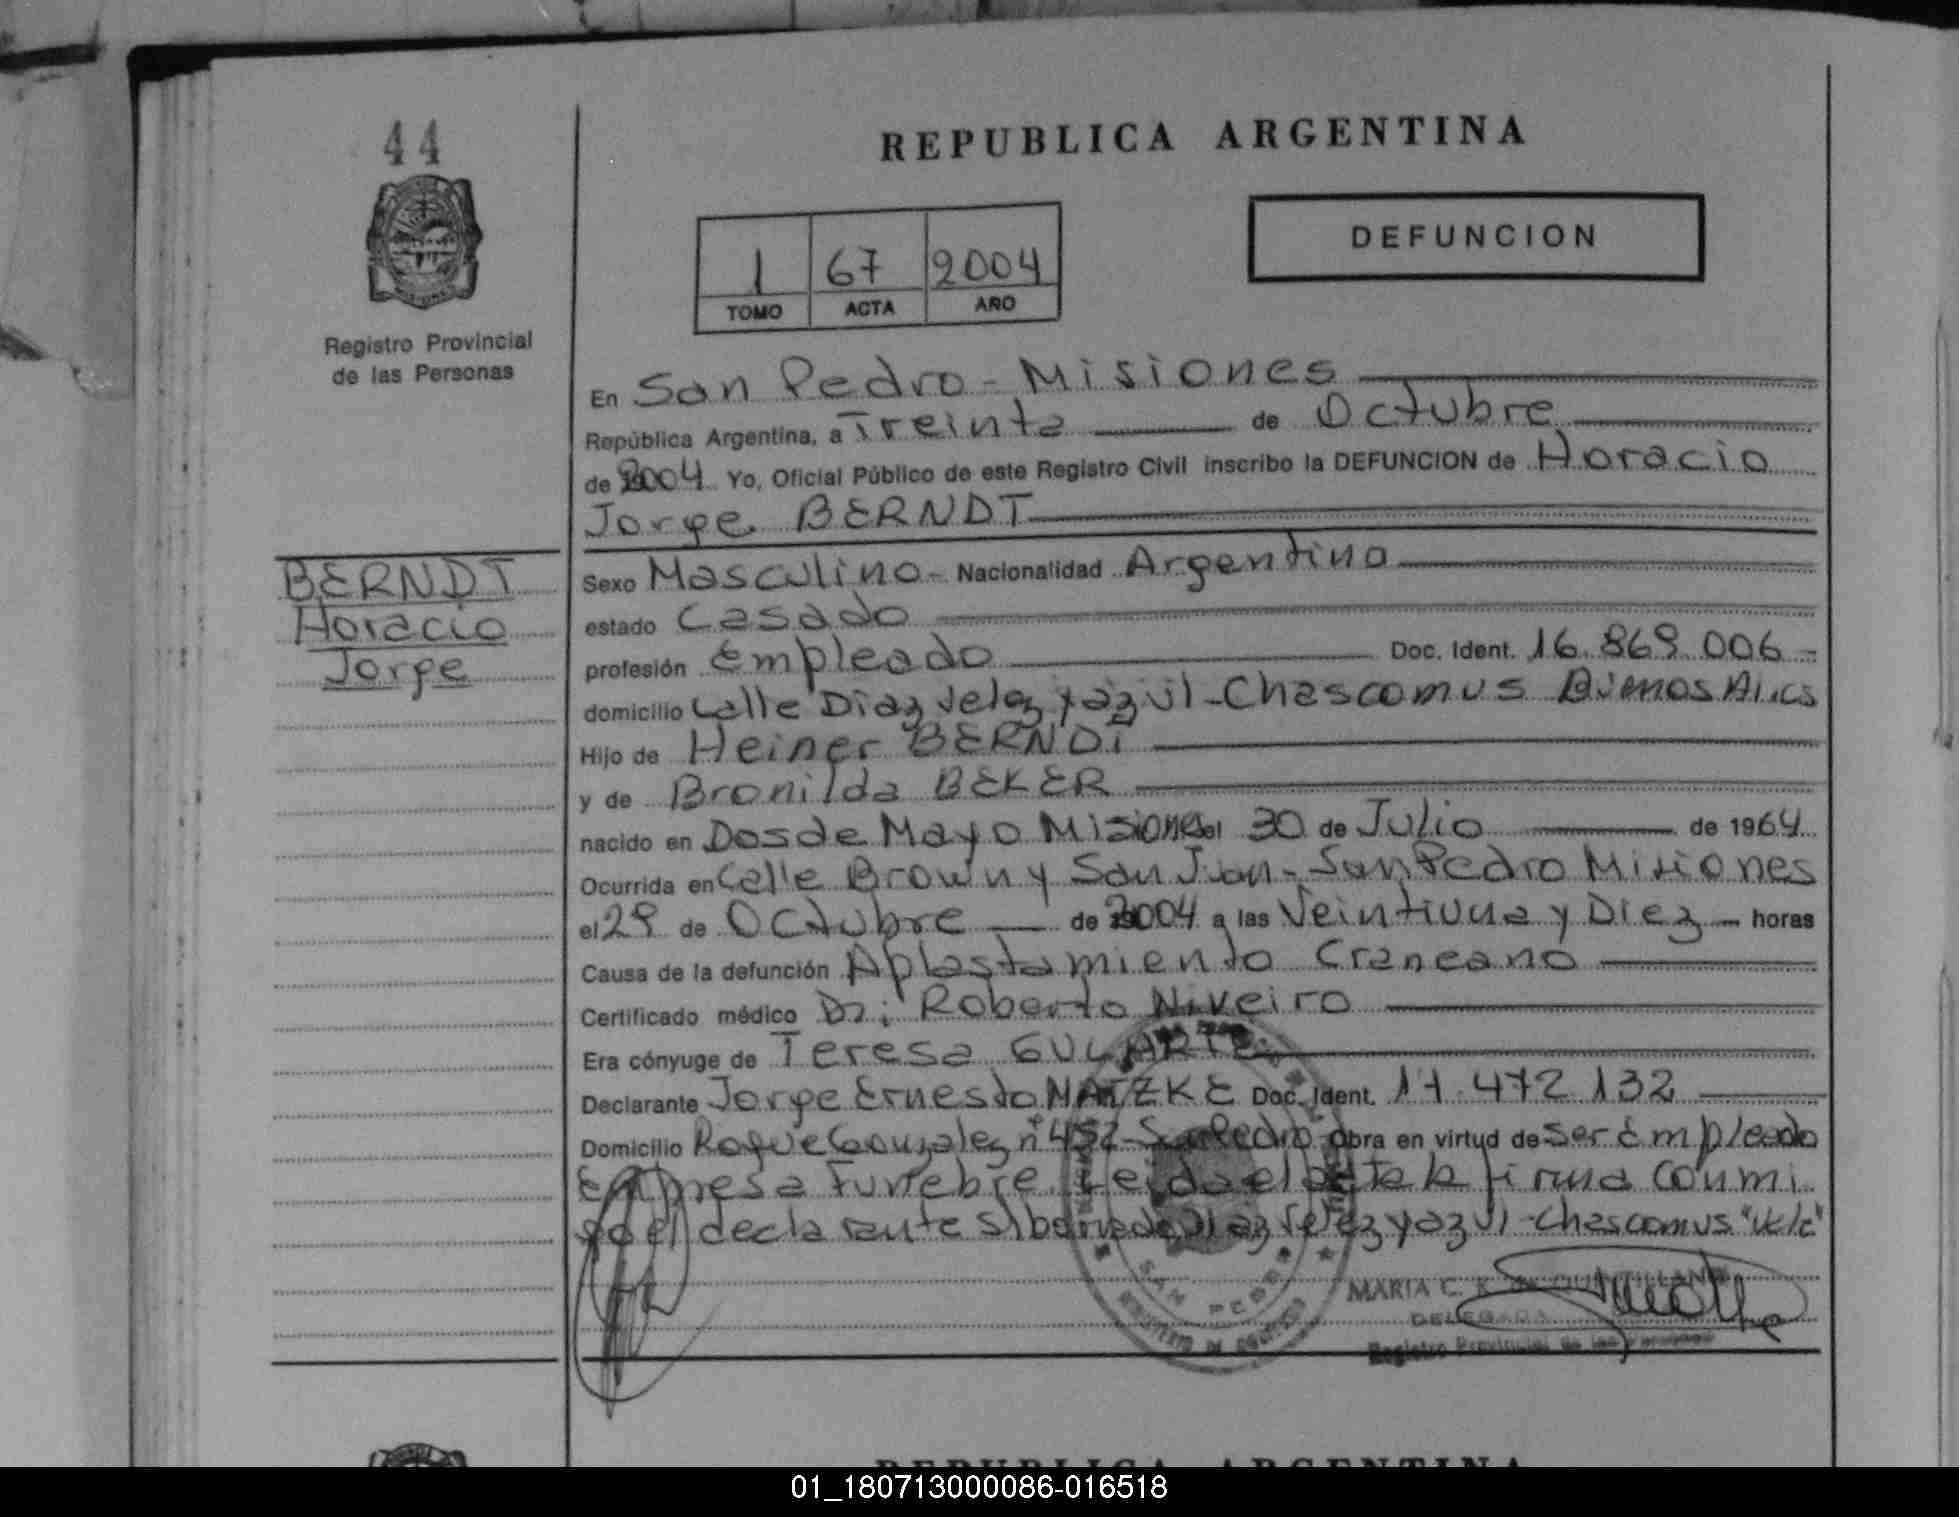 44
REPUBLICA ARGENTINA
DEFUNCION
1 67 2004
TOMO ACTA AÑO
Registro Provincial
de las Personas
En San Pedro - Misiones
República Argentina, a Treinta de Octubre
de 2004 Yo, Oficial Público de este Registro Civil inscribo la DEFUNCION de Horacio
Jorge BERNDT
BERNDT
Horacio
Jorge
Sexo Masculino - Nacionalidad Argentino
estado Casado
profesión Empleado Doc. Ident. 16.869.006 -
domicilio Calle Diaz Velez y azul - Chascomus Buenos Aires
Hijo de Heiner BERNDT
y de Bronilda BEKER
nacido en Dos de Mayo Misiones el 30 de Julio de 1964
Ocurrida en Calle Brown y San Juan - San Pedro Misiones
el 29 de Octubre de 2004 a las Veintiuna y Diez - horas
Causa de la defunción Aplastamiento Craneano
Certificado médico Dr: Roberto Niveiro
Era cónyuge de Teresa GULARTE
Declarante Jorge Ernesto MATZKE Doc. Ident. 17.472.132
Domicilio Roque Gonzalez nº 452 - San Pedro obra en virtud de Ser Empleado
Empresa Funebre Leida el acta la firma conmi
go el declarante S/borrado Diaz Velez y azul - Chascomus "Vale"
SAN PEDRO
MARIA C. K. DE QUINTILLAN
DELEGADA
Registro Provincial de las Personas
REPUBLICA ARGENTINA
01_180713000086-016518